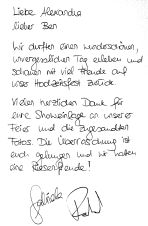 Liebe Alexandra
lieber Ben
Wir durften einen wunderschönen,
unvergesslichen Tag erleben und
schauen mit viel Freude auf
unser Hochzeitsfest zurück.
Vielen herzlichen Dank für
eine Showeinlage an unserer
Feier und die zugesandten
Fotos. Die Überraschung ist
euch gelungen und wir hatten
eine Riesenfreude!
Gabriela